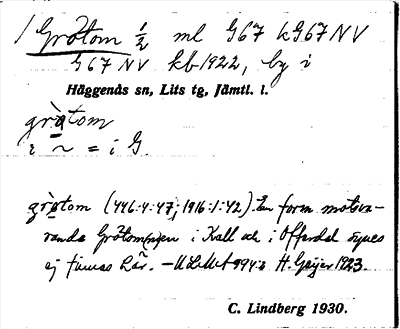 / Grötom ½ ml G67 k G67 NV
G67 NV kb 1922, by i
Häggenås sn, Lits tg, Jämtl. l.
gròtom
i ~ = i G.
gròtom (446:4:47; 1916:1:42). En form motsva-
rande Gröton(n)en i Kall och i Offerdal synes
ej finnas här. – ULMA 994:6 H. Geijer 1923.
C. Lindberg 1930.